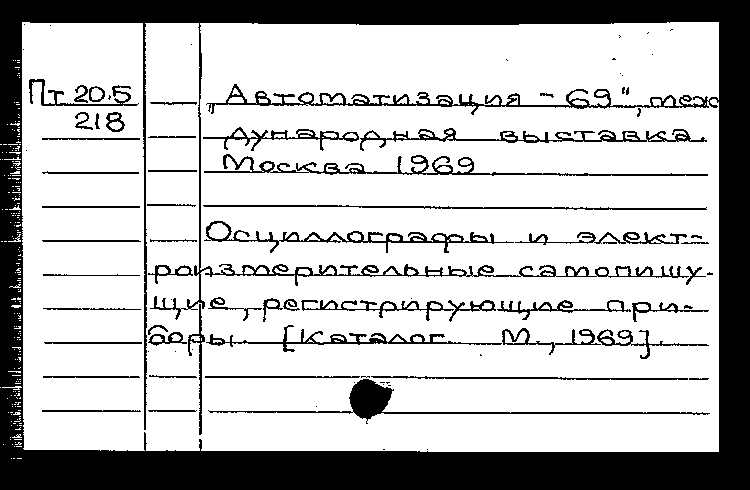 Пт 20.5
218
„Автоматизация - 69", меж
дународная выставка.
Москва 1969.
Осциллографы и элект-
роизмерительные самопишу-
щие, регистрирующие при-
боры. [Каталог. М., 1969].